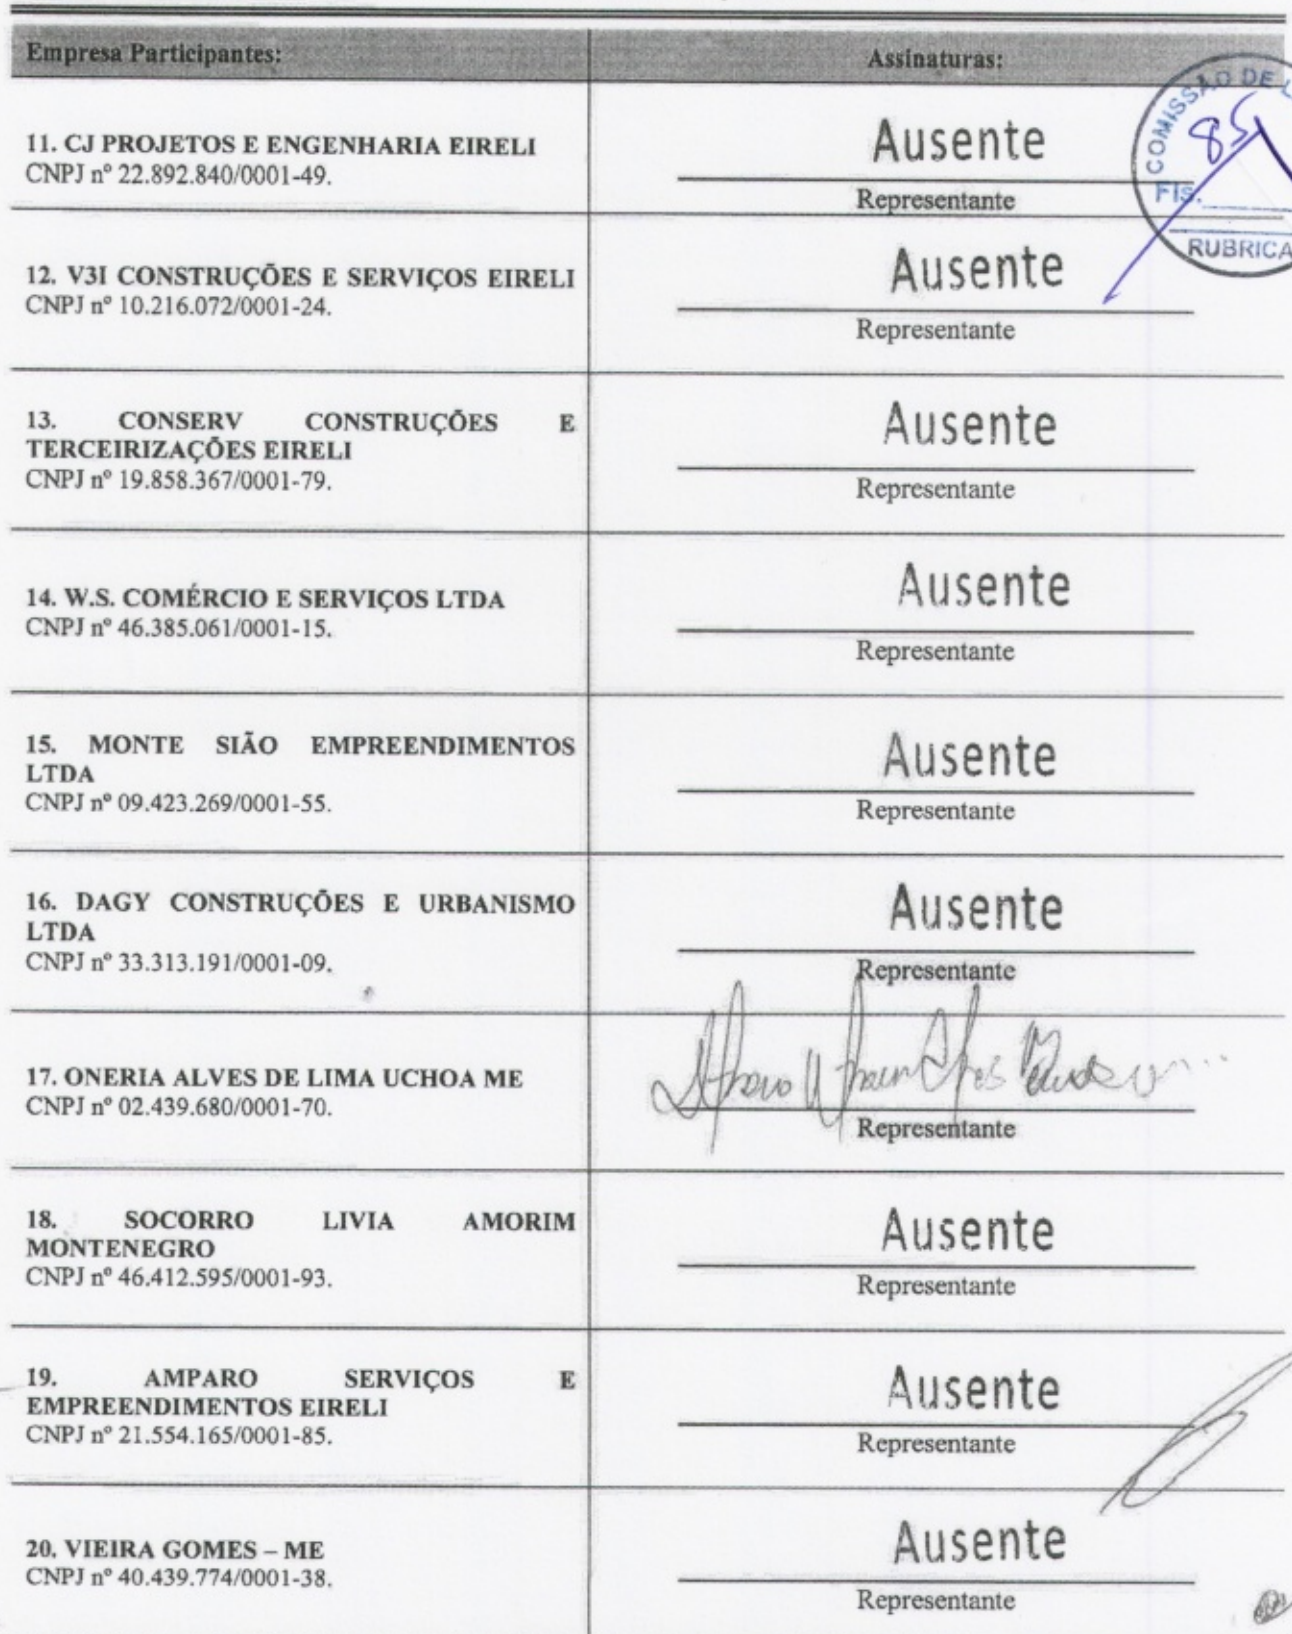 Empresa Participantes:
Assinaturas:
COMISSÃO DE
85
Fls.
RUBRICA
11. CJ PROJETOS E ENGENHARIA EIRELI
CNPJ nº 22.892.840/0001-49.
Ausente
Representante
12. V3I CONSTRUÇÕES E SERVIÇOS EIRELI
CNPJ nº 10.216.072/0001-24.
Ausente
Representante
13. CONSERV CONSTRUÇÕES E
TERCEIRIZAÇÕES EIRELI
CNPJ nº 19.858.367/0001-79.
Ausente
Representante
14. W.S. COMÉRCIO E SERVIÇOS LTDA
CNPJ nº 46.385.061/0001-15.
Ausente
Representante
15. MONTE SIÃO EMPREENDIMENTOS
LTDA
CNPJ nº 09.423.269/0001-55.
Ausente
Representante
16. DAGY CONSTRUÇÕES E URBANISMO
LTDA
CNPJ nº 33.313.191/0001-09.
Ausente
Representante
17. ONERIA ALVES DE LIMA UCHOA ME
CNPJ nº 02.439.680/0001-70.
Representante
18. SOCORRO LIVIA AMORIM
MONTENEGRO
CNPJ nº 46.412.595/0001-93.
Ausente
Representante
19. AMPARO SERVIÇOS E
EMPREENDIMENTOS EIRELI
CNPJ nº 21.554.165/0001-85.
Ausente
Representante
20. VIEIRA GOMES – ME
CNPJ nº 40.439.774/0001-38.
Ausente
Representante